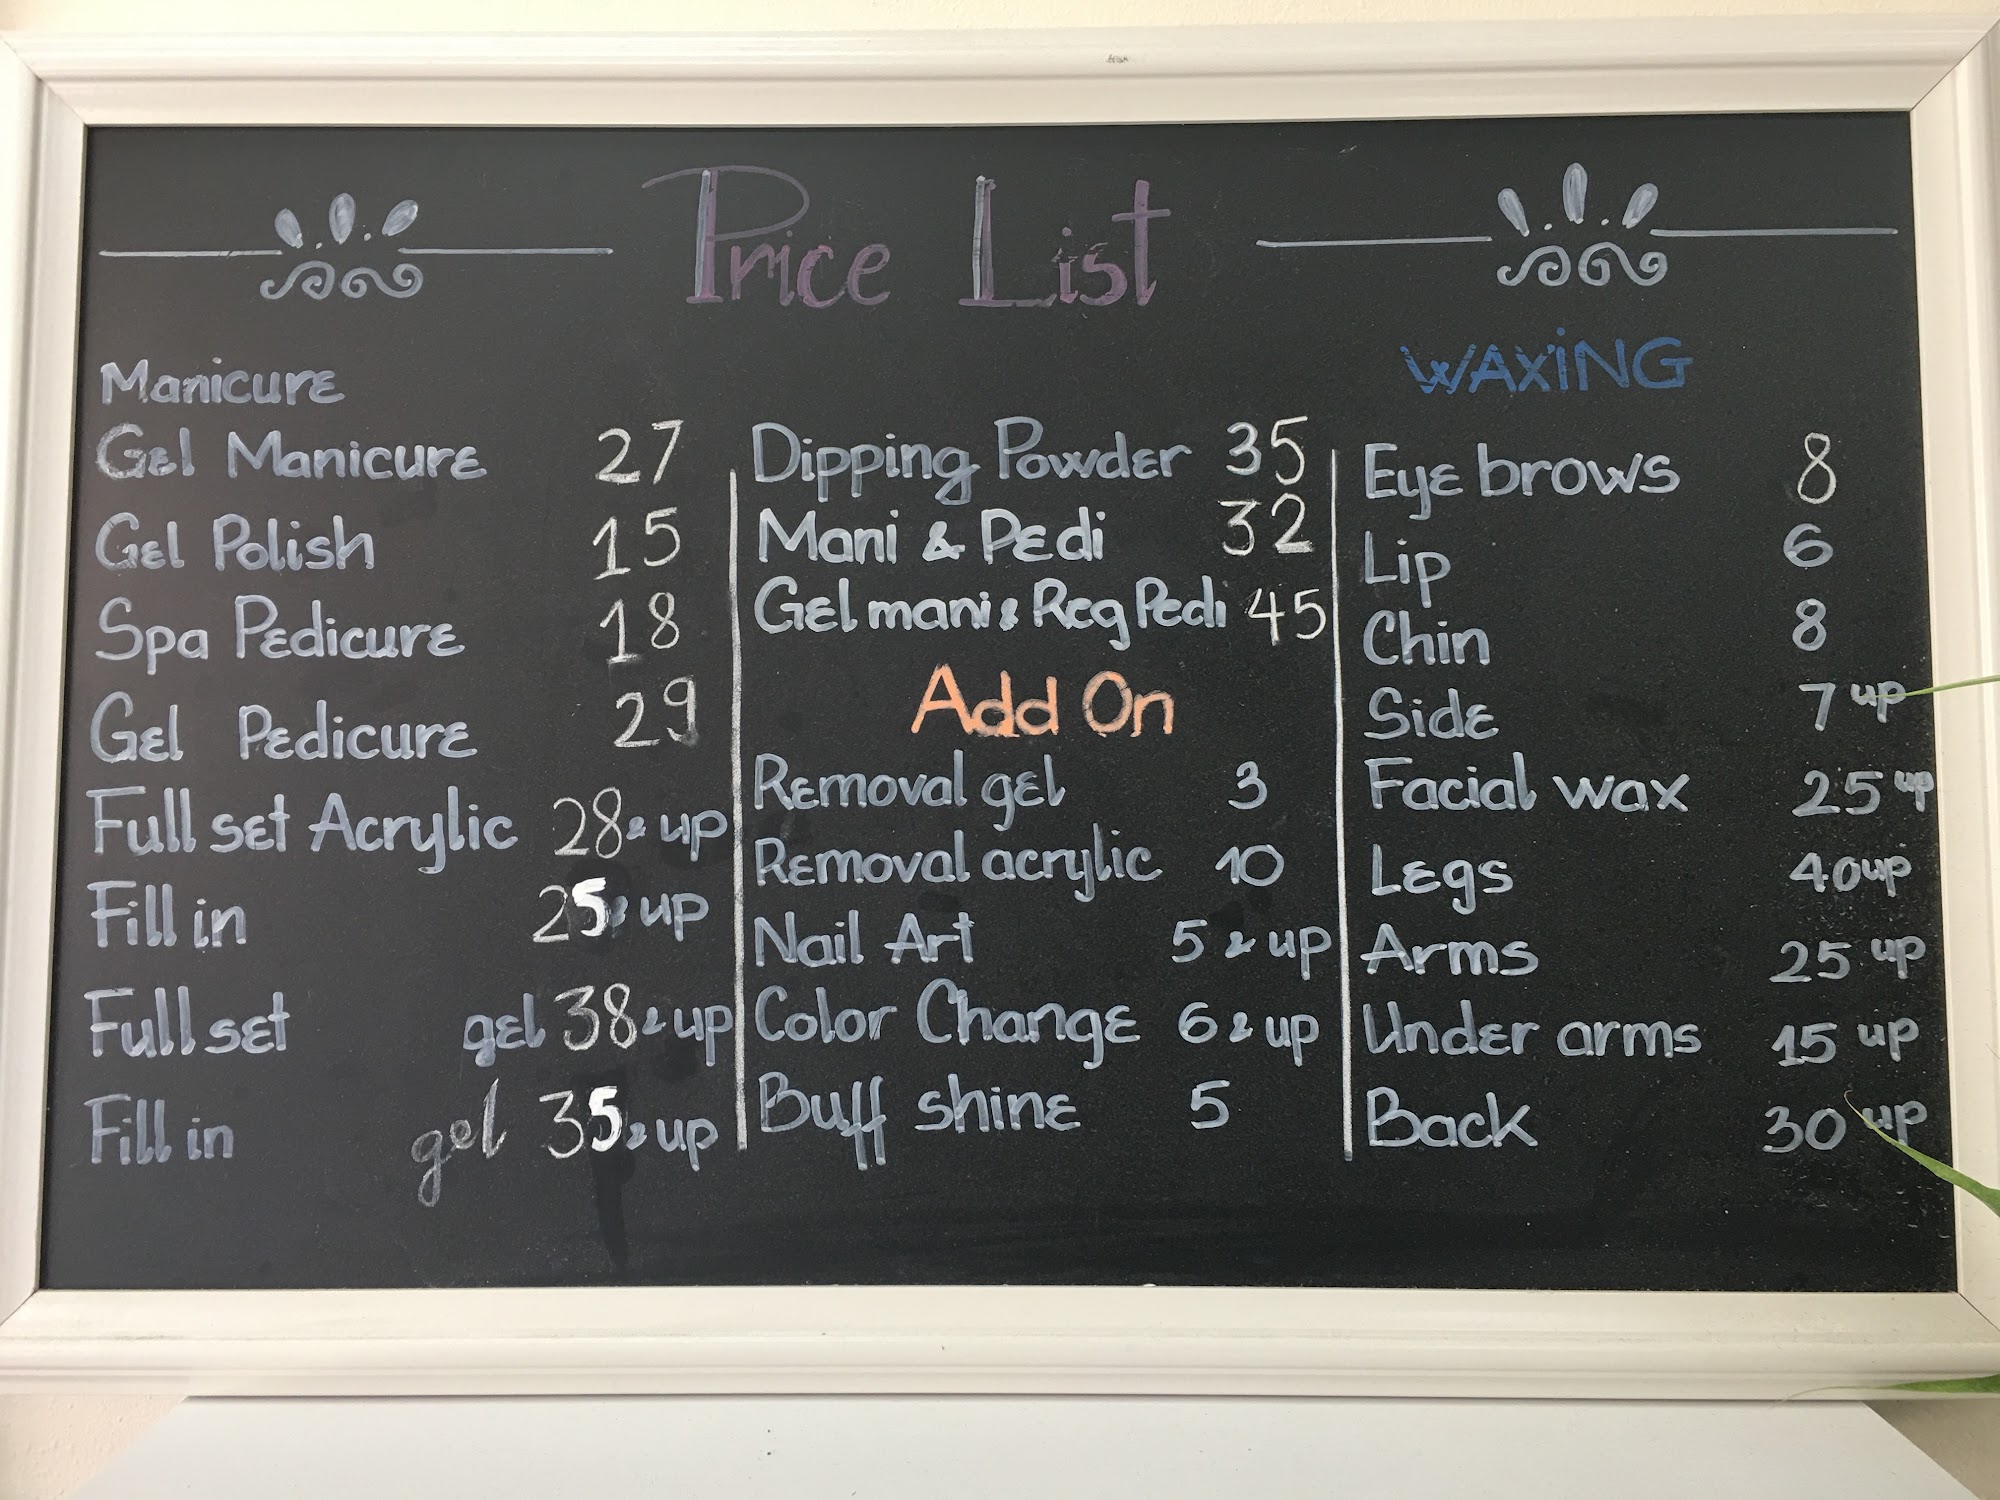 Price List
Manicure
Gel Manicure 27
Gel Polish 15
Spa Pedicure 18
Gel Pedicure 29
Full set Acrylic 28 & up
Fill in 25 & up
Full set gel 38 & up
Fill in gel 35 & up
Dipping Powder 35
Mani & Pedi 32
Gel mani & Reg Pedi 45
Add On
Removal gel 3
Removal acrylic 10
Nail Art 5 & up
Color Change 6 & up
Buff shine 5
WAXiNG
Eye brows 8
Lip 6
Chin 8
Side 7 up
Facial wax 25 up
Legs 40 up
Arms 25 up
Under arms 15 up
Back 30 up